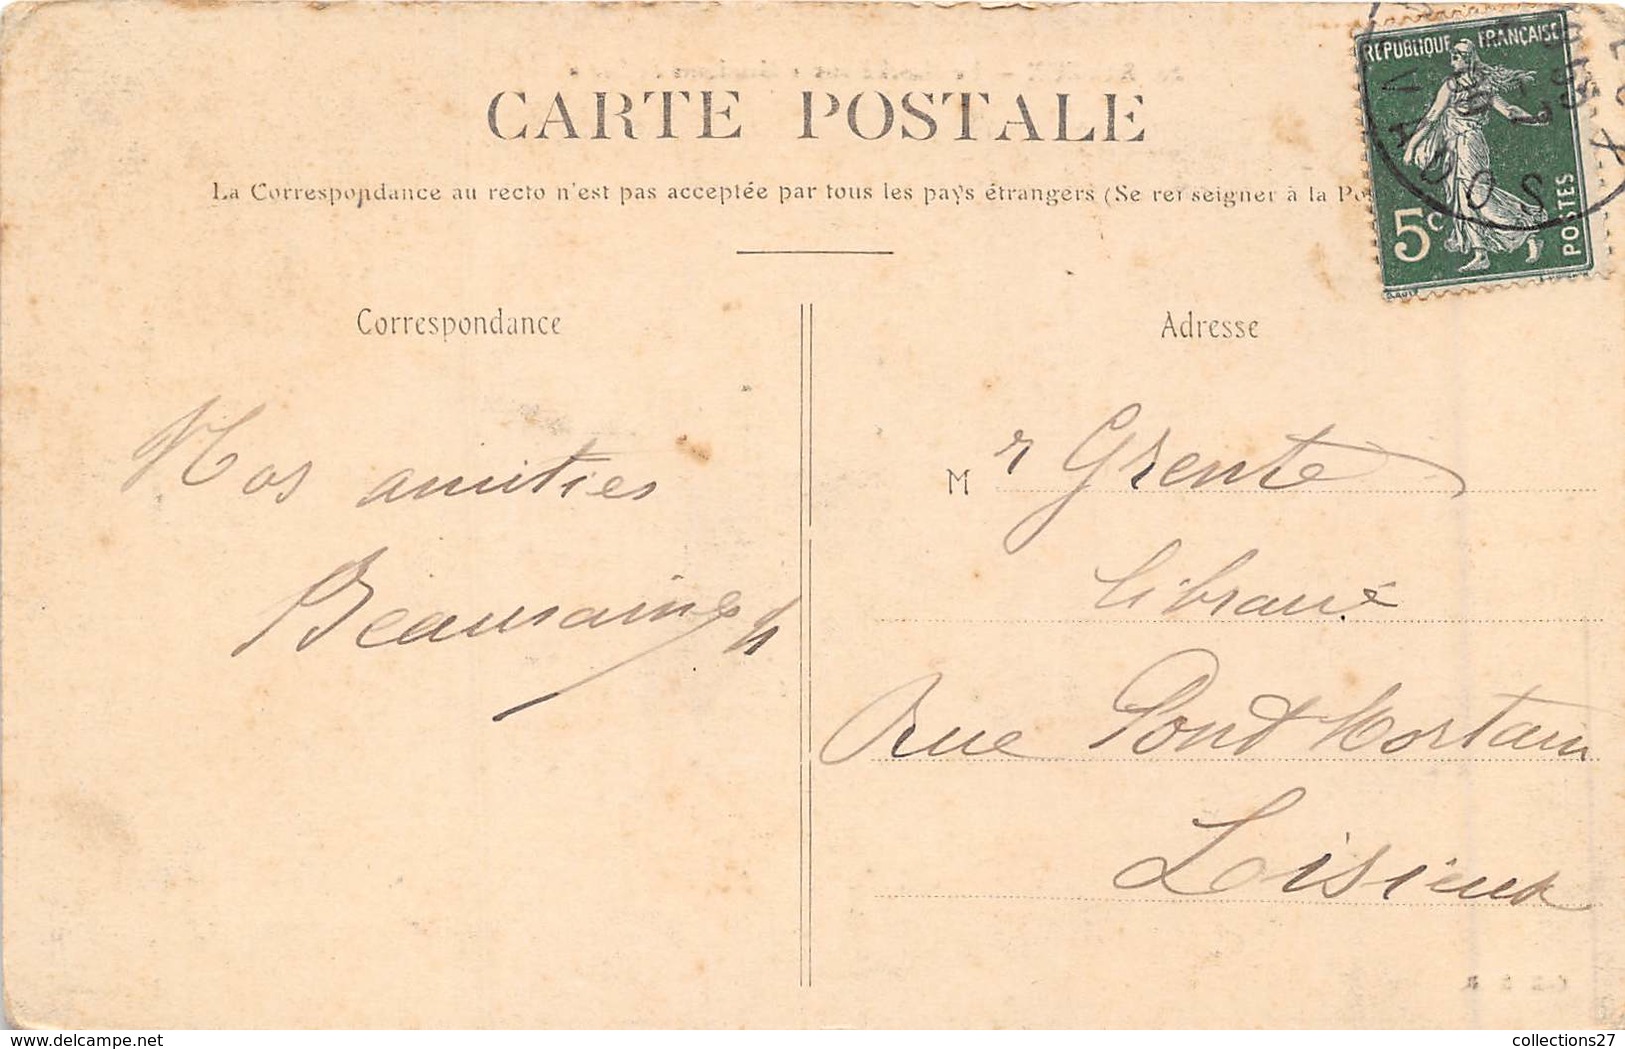 RÉPUBLIQUE FRANÇAISE
5c
POSTES
CALVADOS
CARTE POSTALE
La Correspondance au recto n'est pas acceptée par tous les pays étrangers (Se renseigner à la
Correspondance
Nos amitiés
Adresse
Mr Grente
libraire
Rue Pont Mortain
Lisieux
www.delcampe.net
collections27